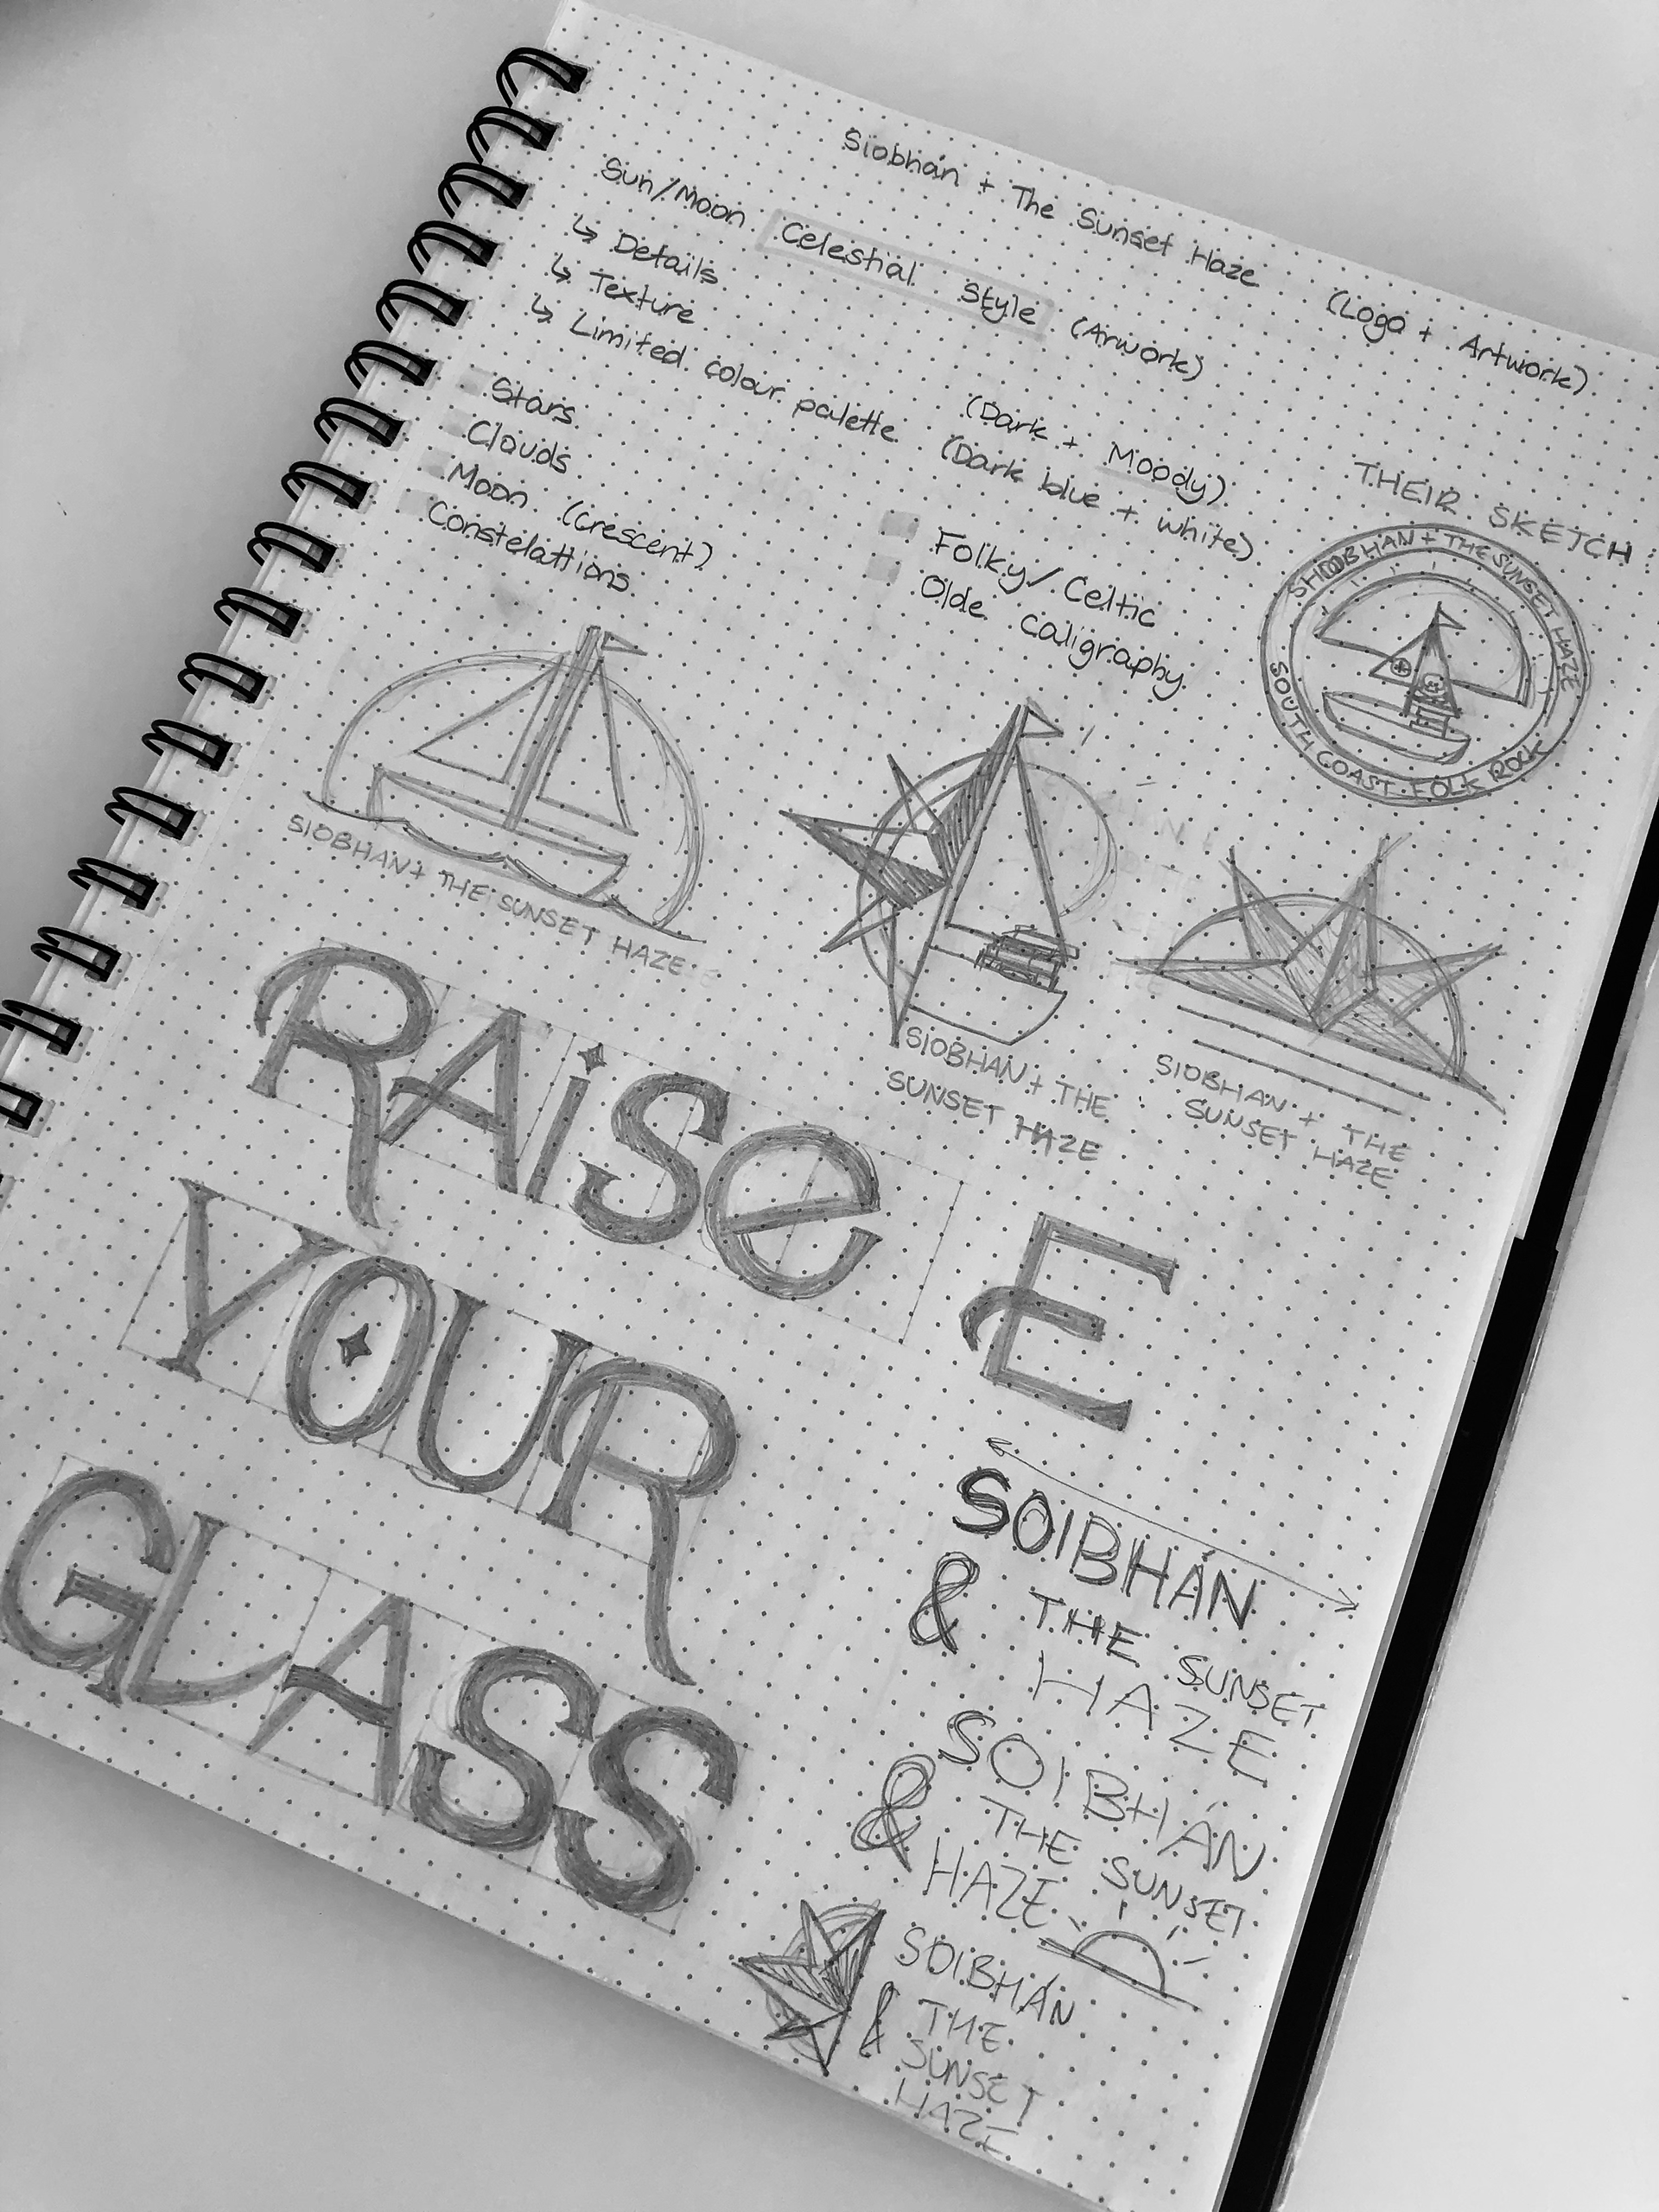 Siobhan + The Sunset Haze (Logo + Artwork)
Sun/Moon Celestial Style (Artwork)
↳ Details
↳ Texture (Dark + Moody)
↳ Limited colour palette (Dark blue + white)
Stars
Clouds
Moon (crescent)
Constelattions
Folky/Celtic
Olde caligraphy
THEIR SKETCH:
SIOBHAN + THE SUNSET HAZE
SOUTH COAST FOLK ROCK
SIOBHAN + THE SUNSET HAZE
SIOBHAN + THE
SUNSET HAZE
SIOBHAN + THE
SUNSET HAZE
RAiSe
YOUR
GLASS
E
SOIBHÁN
& THE SUNSET
HAZE
SOIBHÁN
& THE SUNSET
HAZE
SOIBHÁN
& THE
SUNSET
HAZE